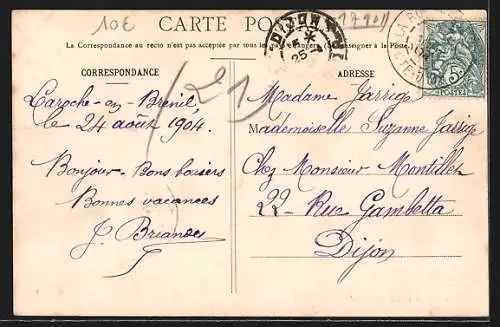 10€
CARTE POSTALE
DIJON
25
La Correspondance au recto n'est pas acceptée par tous les pays étrangers (Se renseigner à la Poste.)
CORRESPONDANCE
ADRESSE
Laroche-en-Brenil,
le 24 août 1904.
Bonjour - Bons baisers
Bonnes vacances
J. Briandes
21
Madame Jarrige
Mademoiselle Suzanne Jarrige
Chez Monsieur Montillet
22 - Rue Gambetta
Dijon
5
POSTES